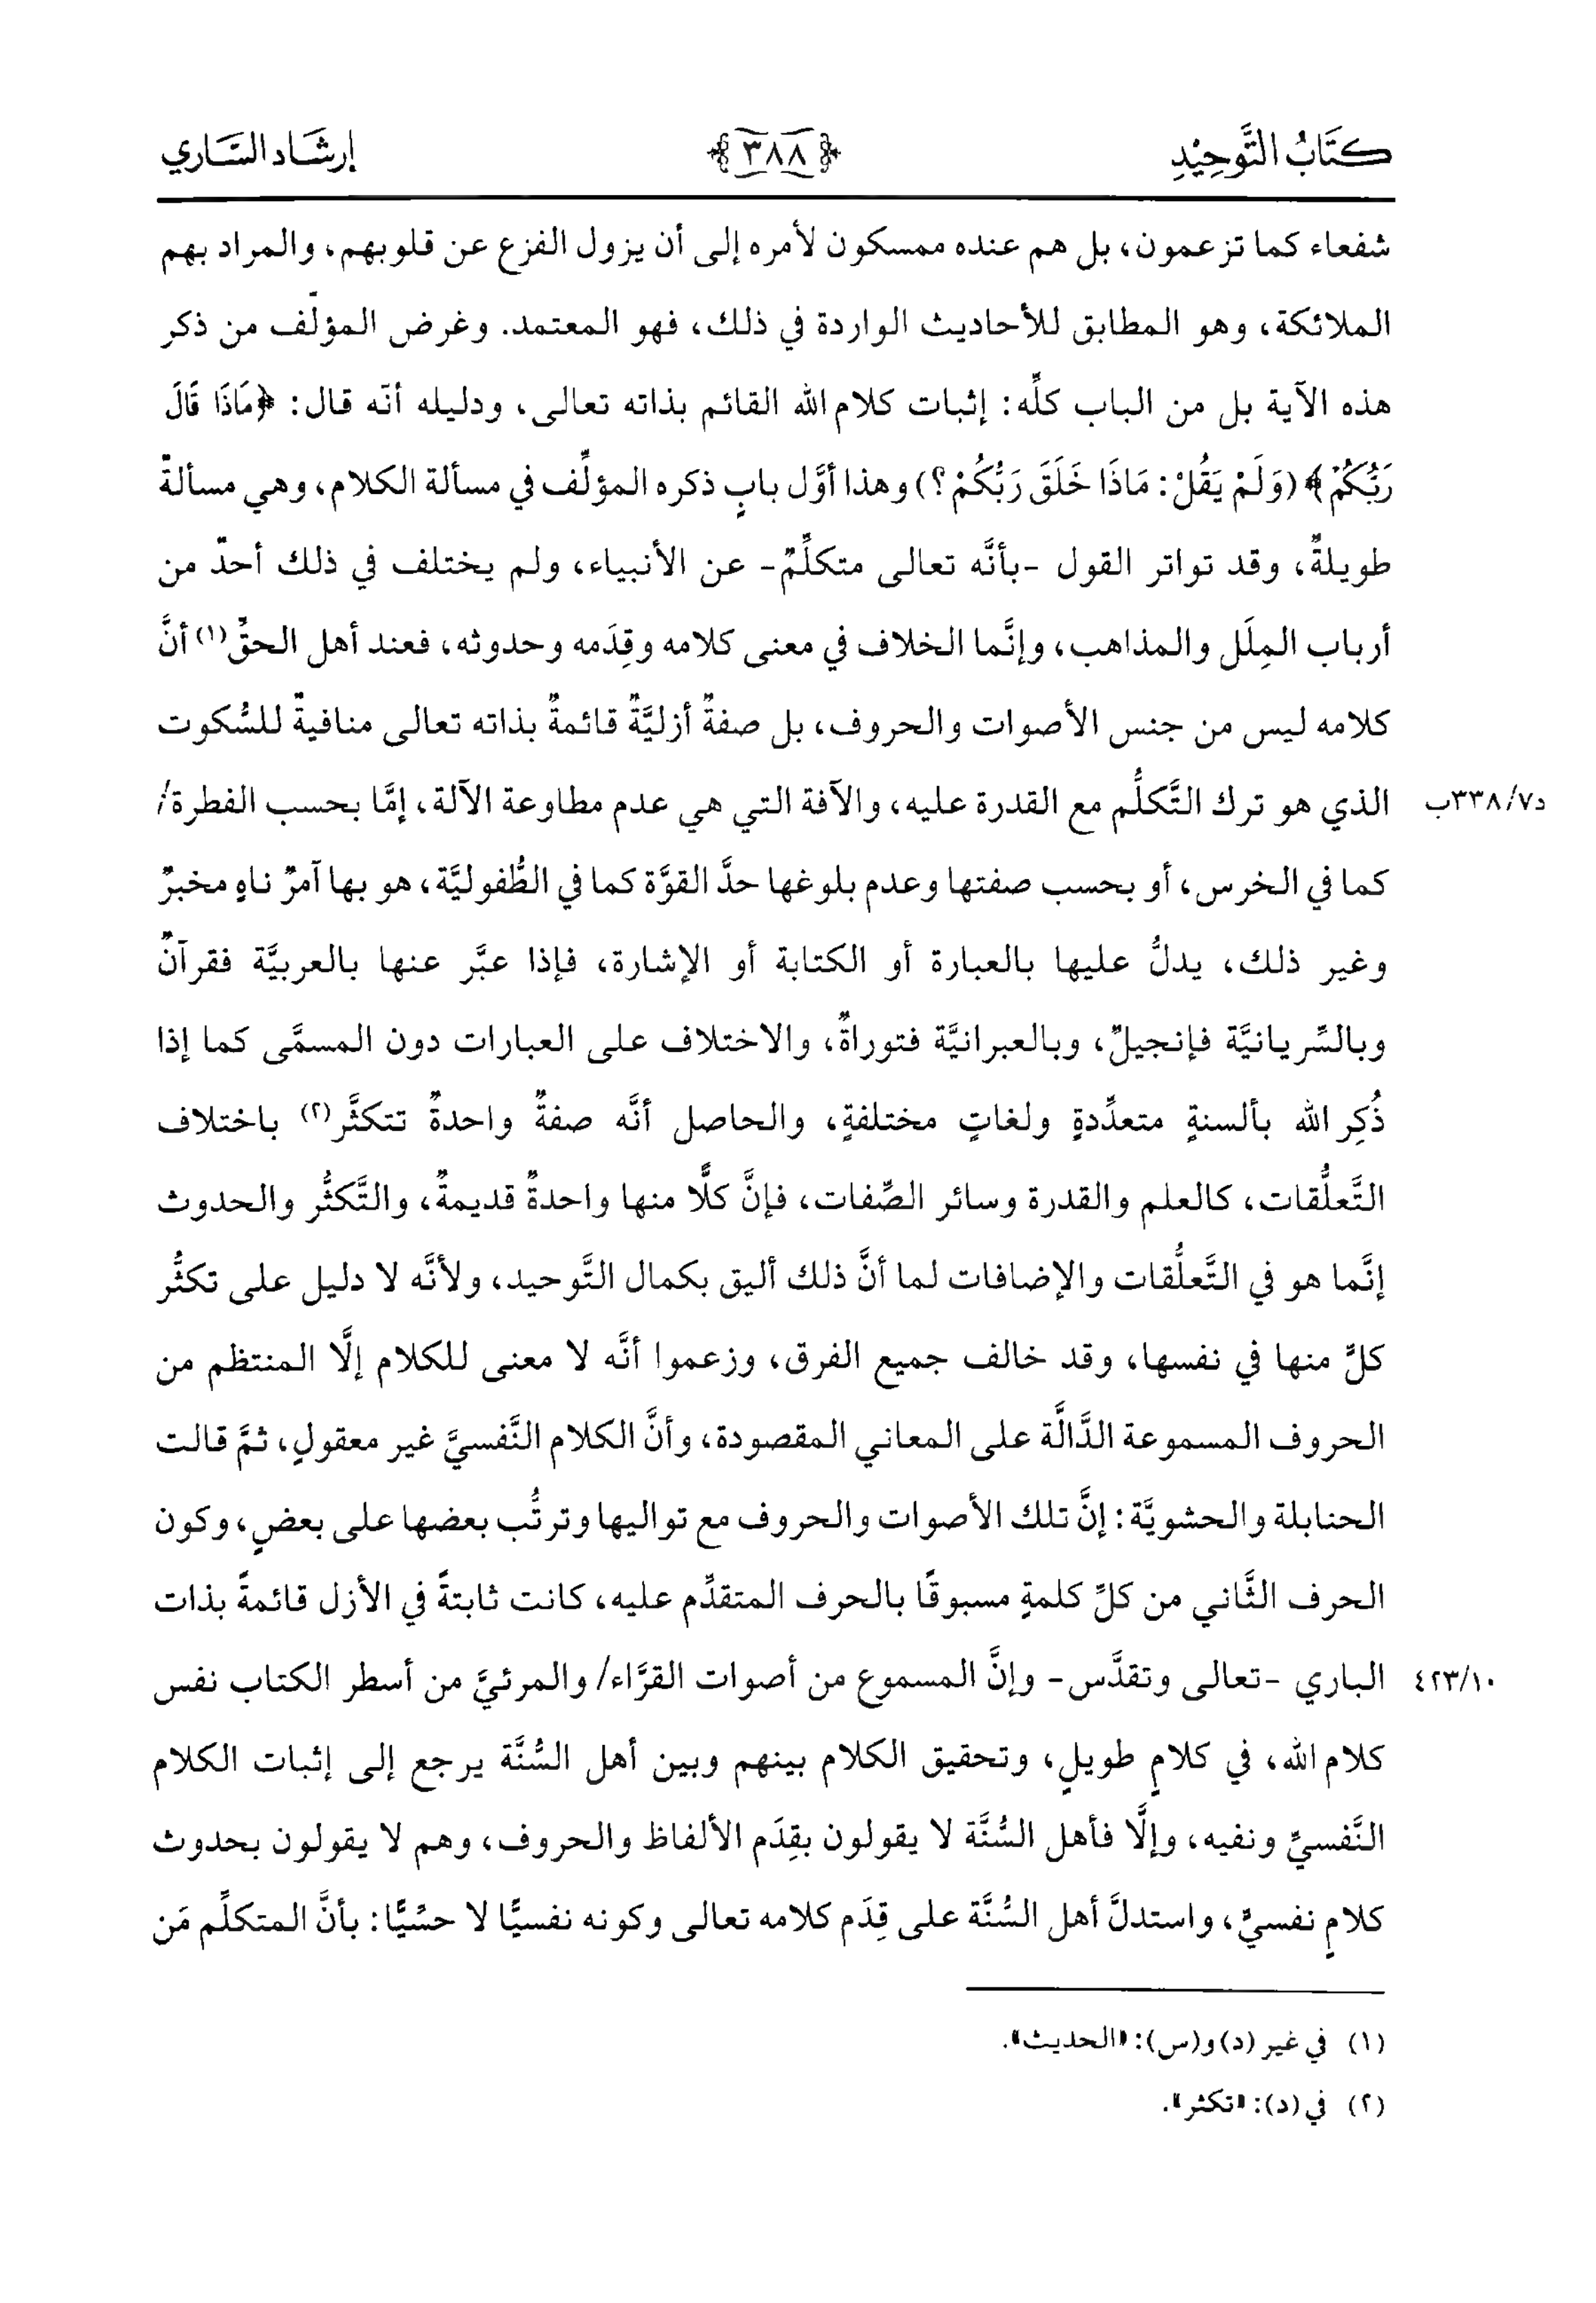 كتَابُ التَّوحِيْدِ ٣٨٨ إرشَاد السَّاري
شفعاء كما تزعمون، بل هم عنده ممسكون لأمره إلى أن يزول الفزع عن قلوبهم، والمراد بهم
الملائكة، وهو المطابق للأحاديث الواردة في ذلك، فهو المعتمد. وغرض المؤلِّف من ذكر
هذه الآية بل من الباب كلِّه: إثبات كلام الله القائم بذاته تعالى، ودليله أنَّه قال: ﴿مَاذَا قَالَ
رَبُّكُمْ﴾ (وَلَمْ يَقُلْ: مَاذَا خَلَقَ رَبُّكُمْ؟) وهذا أوَّل بابٍ ذكره المؤلِّف في مسألة الكلام، وهي مسألةٌ
طويلةٌ، وقد تواتر القول -بأنَّه تعالى متكلِّمٌ- عن الأنبياء، ولم يختلف في ذلك أحدٌ من
أرباب المِلَل والمذاهب، وإنَّما الخلاف في معنى كلامه وقِدَمه وحدوثه، فعند أهل الحقِّ(١) أنَّ
كلامه ليس من جنس الأصوات والحروف، بل صفةٌ أزليَّةٌ قائمةٌ بذاته تعالى منافيةٌ للسُّكوت
د٣٣٨/٧ب الذي هو ترك التَّكلُّم مع القدرة عليه، والآفة التي هي عدم مطاوعة الآلة، إمَّا بحسب الفطرة/
كما في الخرس، أو بحسب صفتها وعدم بلوغها حدَّ القوَّة كما في الطُّفوليَّة، هو بها آمرٌ ناهٍ مخبرٌ
وغير ذلك، يدلُّ عليها بالعبارة أو الكتابة أو الإشارة، فإذا عبَّر عنها بالعربيَّة فقرآنٌ
وبالسِّريانيَّة فإنجيلٌ، وبالعبرانيَّة فتوراةٌ، والاختلاف على العبارات دون المسمَّى كما إذا
ذُكِر الله بألسنةٍ متعدِّدةٍ ولغاتٍ مختلفةٍ، والحاصل أنَّه صفةٌ واحدةٌ تتكثَّر(٢) باختلاف
التَّعلُّقات، كالعلم والقدرة وسائر الصِّفات، فإنَّ كلًّا منها واحدةٌ قديمةٌ، والتَّكثُّر والحدوث
إنَّما هو في التَّعلُّقات والإضافات لما أنَّ ذلك أليق بكمال التَّوحيد، ولأنَّه لا دليل على تكثُّر
كلٍّ منها في نفسها، وقد خالف جميع الفرق، وزعموا أنَّه لا معنى للكلام إلَّا المنتظم من
الحروف المسموعة الدَّالَّة على المعاني المقصودة، وأنَّ الكلام النَّفسيَّ غير معقولٍ، ثمَّ قالت
الحنابلة والحشويَّة: إنَّ تلك الأصوات والحروف مع تواليها وترتُّب بعضها على بعضٍ، وكون
الحرف الثَّاني من كلِّ كلمةٍ مسبوقًا بالحرف المتقدِّم عليه، كانت ثابتةً في الأزل قائمةً بذات
٤٢٣/١٠ الباري -تعالى وتقدَّس- وإنَّ المسموع من أصوات القرَّاء/ والمرئيَّ من أسطر الكتاب نفس
كلام الله، في كلامٍ طويلٍ، وتحقيق الكلام بينهم وبين أهل السُّنَّة يرجع إلى إثبات الكلام
النَّفسيِّ ونفيه، وإلَّا فأهل السُّنَّة لا يقولون بقِدَم الألفاظ والحروف، وهم لا يقولون بحدوث
كلامٍ نفسيٍّ، واستدلَّ أهل السُّنَّة على قِدَم كلامه تعالى وكونه نفسيًّا لا حسِّيًّا: بأنَّ المتكلِّم مَن
(١) في غير (د) و(س): «الحديث».
(٢) في (د): «تكثر».